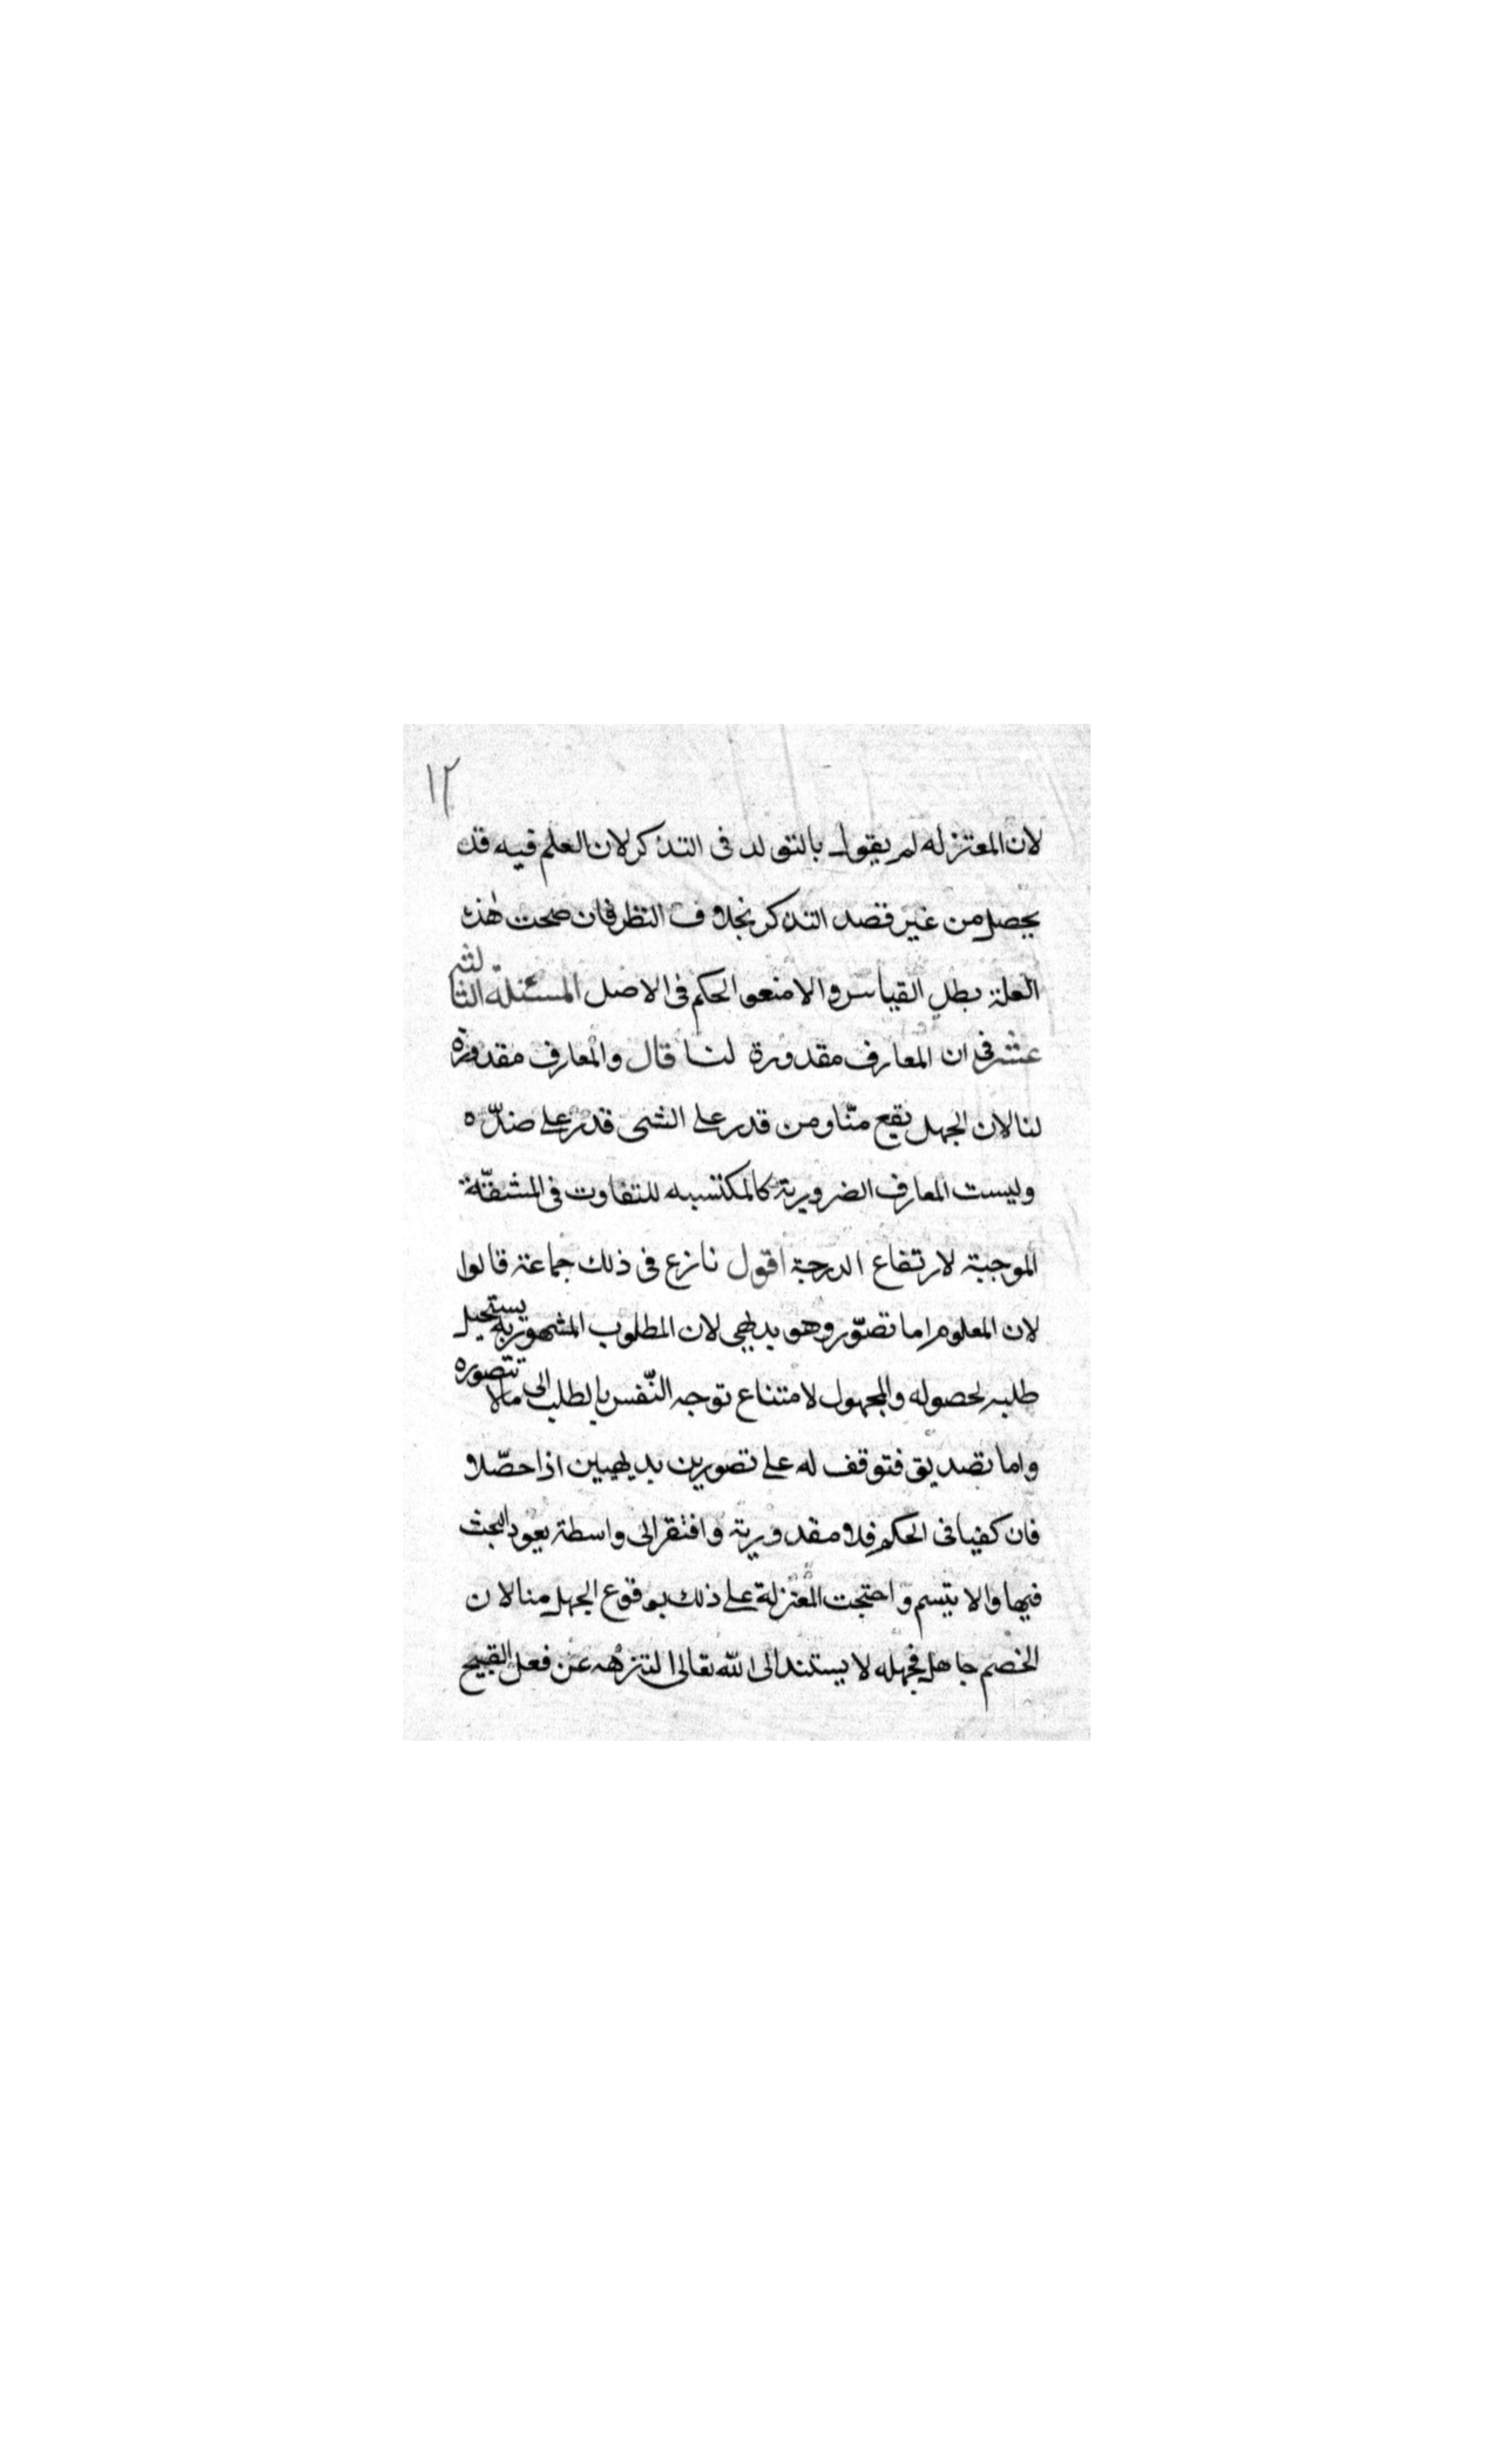 ١٢
لان المعتزله لم يقول بالتولد فى التذكر لان العلم فيه قد
يحصل من غير قصد التذكر بخلاف النظر فان صحت هذه
العلة بطل القياس والا منعوا الحكم فى الاصل المسئلة الثالثة
عشر فى ان المعارف مقدورة لنا قال والمعارف مقدورة
لنا لان الجهل يقع منّا ومن قدر على الشى قدر على ضدّه
وليست المعارف الضرورية كالمكتسبه للتفاوت فى المشقّة
الموجبة لارتفاع الدرجة اقول نازع فى ذلك جماعة قالوا
لان المعلوم اما تصوّر وهو بديهى لان المطلوب المشهور به يستحيل
طلبه لحصوله والمجهول لامتناع توجه النّفس بالطلب الى مالا تتصوره
واما تصديق فتوقف له على تصورين بديهيين اذا حصّلا
فان كفيا فى الحكم فلا مقدورية وافتقر الى واسطة يعود البحث
فيها والا يتسم واحتجت المعتزلة على ذلك بوقوع الجهل منا لان
الخصم جاهل فجهله لا يستند الى الله تعالى لتنزهه عن فعل القبيح